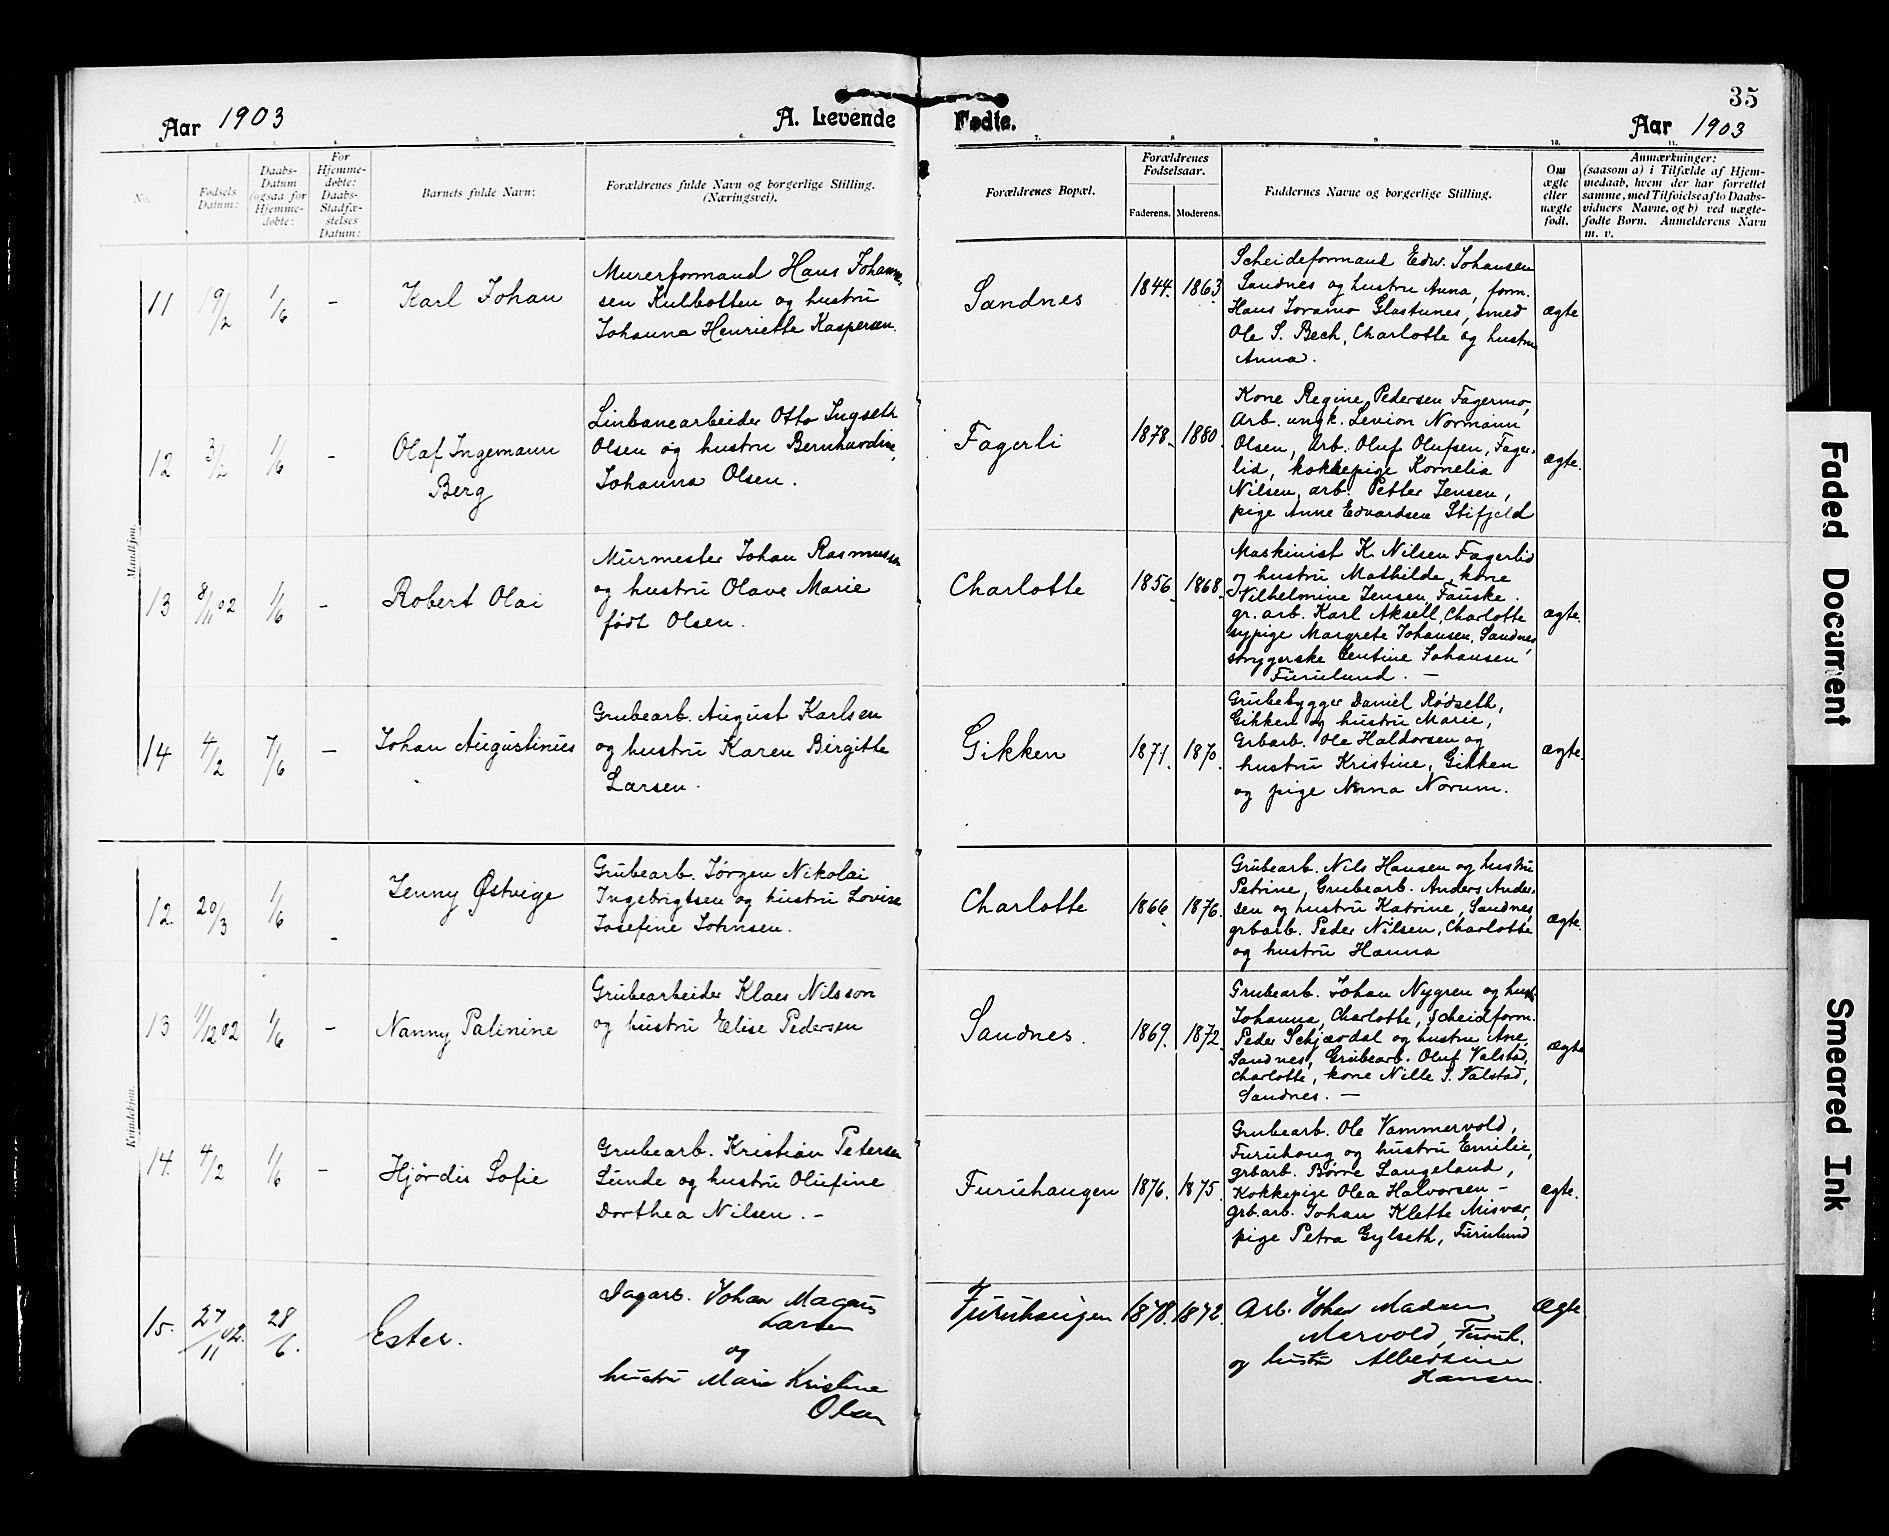 35
Aar 1903
A. Levende Fødte.
Aar 1903
No.
Fødsels Datum:
Daabs-Datum (ogsaa for Hjemme-døbte:
For Hjemme-døbte: Daabs-Stadfæ-stelses Datum:
Barnets fulde Navn:
Forældrenes fulde Navn og borgerlige Stilling. (Næringsvei).
Forældrenes Bopæl.
Forældrenes Fødselsaar.
Faderens. Moderens.
Faddernes Navne og borgerlige Stilling.
Om ægte eller uægte født.
Anmærkninger:
(saasom a) i Tilfælde af Hjem-
medaab, hvem der har forrettet
samme, med Tilføielse af to Daabs-
vidners Navne, og b) ved uægte-
fødte Børn. Anmelderens Navn
m. v.
Mandkjøn.
11 19/2 1/6 – Karl Johan
Murerformand Hans Johann-
sen Kulbotten og hustru
Johanna Henriette Kaspersen.
Sandnes 1844. 1863
Scheideformand Edw. Johansen
Sandnes og hustru Anna, form.
Hans Joramo Glastunes, smed
Ole S. Bech, Charlotte og hustru
Anna.
ægte
12 3/2 1/6 – Olaf Ingemann
Berg
Linbanearbeider Otto Ingseth
Olsen og hustru Bernhardine,
Johanna Olsen.
Fagerli 1878. 1880.
Kone Regine Pedersen Fagermo,
Arb. ungk. Levion Normann
Olsen, Arb. Oluf Olufsen, Fager-
lid, kokkepige Kornelia
Nilsen, arb. Petter Jensen,
pige Anne Edvardsen Stifjeld
ægte.
13 8/11 02 1/6 – Robert Olai
Murmester Johan Rasmussen
og hustru Olave Marie
født Olsen.
Charlotte 1856. 1868.
Maskinist K. Nilsen Fagerlid
og hustru Mathilde, kone
Vilhelmine Jensen, Fauske.
gr. arb. Karl Aksell, Charlotte
sypige Margrete Johansen, Sandnes,
strygerske Gentine Johansen
Furulund. –
ægte.
14 4/2 7/6 – Johan Augustinus
Grubearb. August Karlsen
og hustru Karen Birgitte
Larsen.
Gikken 1871. 1870.
Grubebygger Daniel Rødseth,
Gikken og hustru Marie,
Grbarb. Ole Haldorsen og
hustru Kristine, Gikken
og pige Anna Norum.
ægte.
Kvindekjøn.
12. 20/3 1/6 – Jenny Østvige
Grubearb. Jørgen Nikolai
Ingebrigtsen og hustru Lovise
Josefine Johnsen.
Charlotte 1866. 1876.
Grubearb. Nils Hansen og hustru
Petrine, Grubearb. Anders Ander-
sen og hustru Katrine, Sandnes,
grbarb. Peder Nilsen, Charlotte
og hustru Hanna
ægte.
13 11/12 02 1/6 – Nanny Paline
Grubearbeider Klaes Nilsson
og hustru Elise Pedersen
Sandnes. 1869. 1872.
Grubearb. Johan Nygren og hustr.
Johanna, Charlotte, Scheidform.
Peder Schjærdal og hustru Ane,
Sandnes, Grubearb. Oluf Valstad,
Charlotte, kone Nille S. Valstad,
Sandnes. –
ægte
14. 4/2 1/6 – Hjørdis Sofie
Grubearb. Kristian Petersen
Sunde og hustru Olufine
Dorthea Nilsen. –
Furuhaugen 1876. 1875.
Grubearb. Ole Vammervold,
Furuhaug og hustru Emilie,
grbarb. Børre Langeland,
Kokkepige Olea Halvorsen –
grb.arb. Johan Klette Misvær,
pige Petra Gylseth, Furulund
ægte.
15. 27/11 02. 28/6. Ester.
Dagarb. Johan Magnus
Larsen
og
hustru Marie Kristine
Olsen
Furuhaugen 1878. 1872.
Arb. Johan Madsen
Mervold, Furuh.
og hustru Albertine
Hansen.
Ægte
Faded Document
Smeared Ink